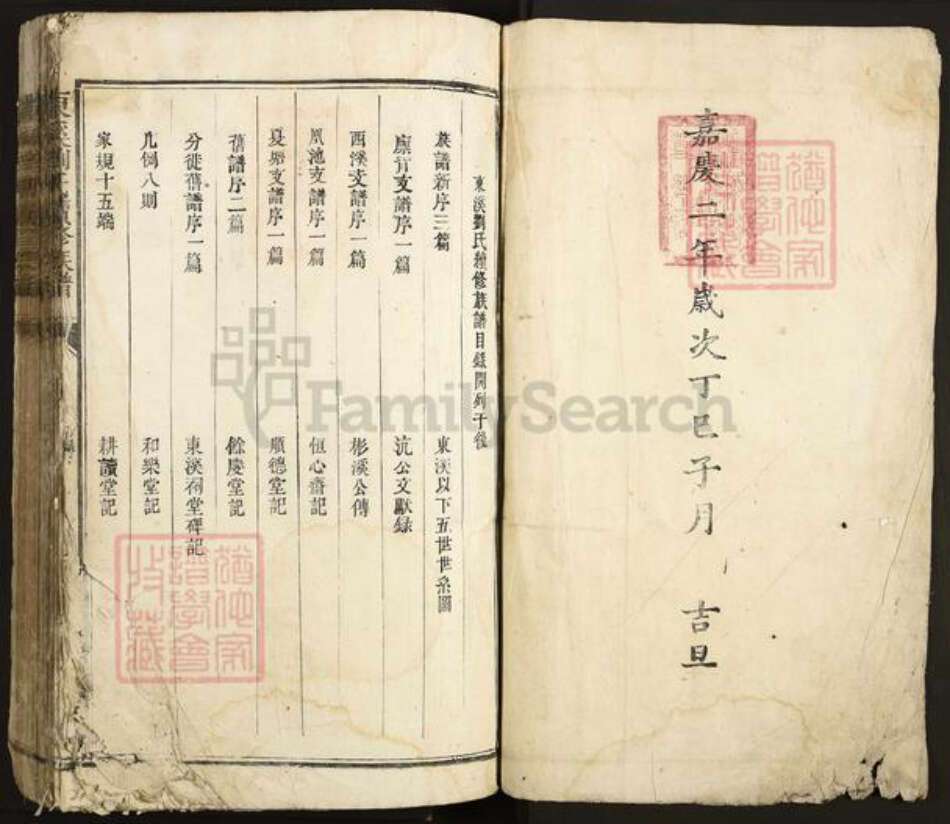 嘉慶二年歲次丁巳子月 吉旦
東溪劉氏種修族譜目錄開列于後
族譜新序三篇 東溪以下五世世系圖
廩背支譜序一篇 沆公文獻錄
西溪支譜序一篇 彬溪公傳
鳳池支譜序一篇 恒心齋記
夏塘支譜序一篇 順德堂記
舊譜序二篇 餘慶堂記
分徙舊譜序一篇 東溪祠堂碑記
凡例八則 和樂堂記
家規十五端 耕讀堂記
猶他家譜學會
猶他家譜學會攷藏
FamilySearch